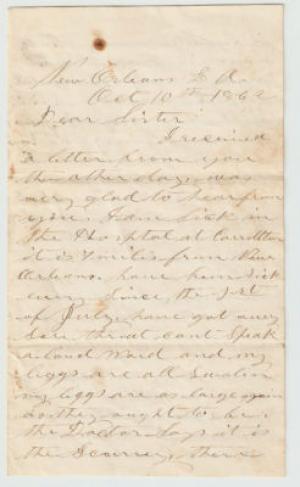 New Orleans L A.
Oct 10th 1862
Dear Sister
I received
a letter from you
the other day, was
very glad to hear from
you. I am sick in
the Hospital at Carrollton
it is 7 miles from New
Orleans. have been sick
ever since the 1st
of July, have got a very
sore throat cant speak
a loud word and my
leggs are all swolen
my leggs are as large again
as they ought to be.
the Doctor says it is
the Scurvey, there